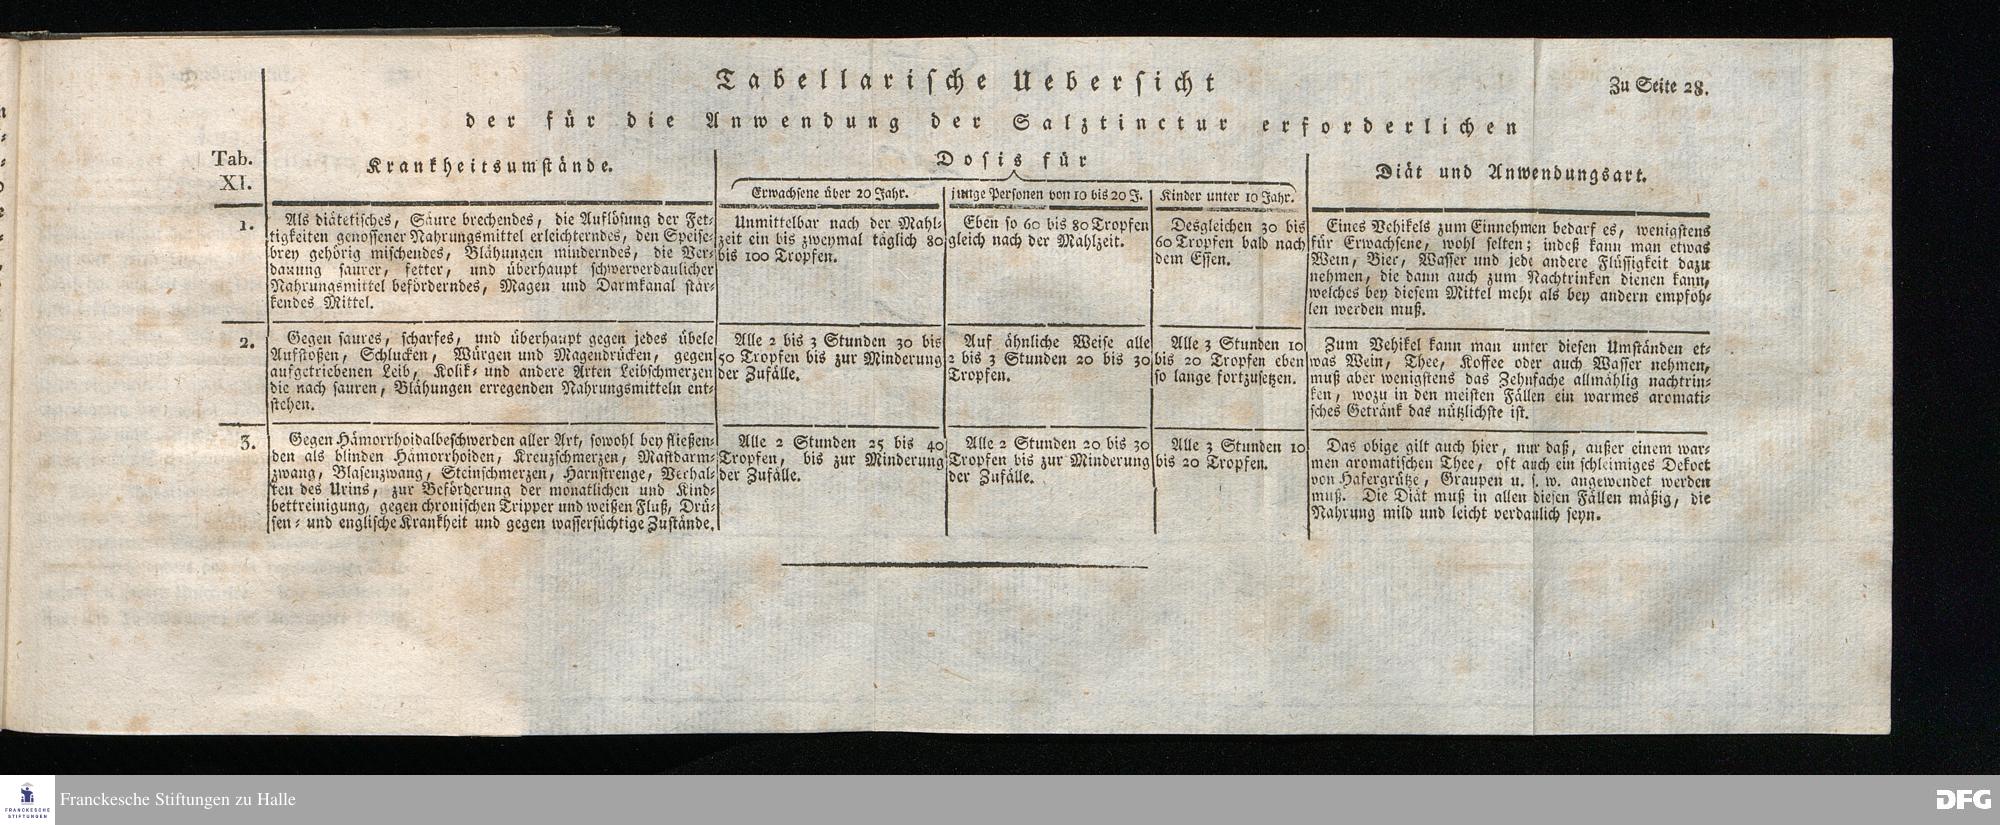 Tabellarische Uebersicht
Zu Seite 28.
der für die Anwendung der Salztinctur erforderlichen
Tab.
XI.
Krankheitsumstände.
Dosis für
Diät und Anwendungsart.
Erwachsene über 20 Jahr.
junge Personen von 10 bis 20 J.
Kinder unter 10 Jahr.
1.
Als diätetisches, Säure brechendes, die Auflösung der Fet-
tigkeiten genossener Nahrungsmittel erleichterndes, den Speise-
brey gehörig mischendes, Blähungen minderndes, die Ver-
dauung saurer, fetter, und überhaupt schwerverdaulicher
Nahrungsmittel beförderndes, Magen und Darmkanal stär-
kendes Mittel.
Unmittelbar nach der Mahl-
zeit ein bis zweymal täglich 80
bis 100 Tropfen.
Eben so 60 bis 80 Tropfen
gleich nach der Mahlzeit.
Desgleichen 30 bis
60 Tropfen bald nach
dem Essen.
Eines Vehikels zum Einnehmen bedarf es, wenigstens
für Erwachsene, wohl selten; indeß kann man etwas
Wein, Bier, Wasser und jede andere Flüssigkeit dazu
nehmen, die dann auch zum Nachtrinken dienen kann,
welches bey diesem Mittel mehr als bey andern empfoh-
len werden muß.
2.
Gegen saures, scharfes, und überhaupt gegen jedes übele
Aufstoßen, Schlucken, Würgen und Magendrücken, gegen
aufgetriebenen Leib, Kolik- und andere Arten Leibschmerzen
die nach sauren, Blähungen erregenden Nahrungsmitteln ent-
stehen.
Alle 2 bis 3 Stunden 30 bis
50 Tropfen bis zur Minderung
der Zufälle.
Auf ähnliche Weise alle
2 bis 3 Stunden 20 bis 30
Tropfen.
Alle 3 Stunden 10
bis 20 Tropfen eben
so lange fortzusetzen.
Zum Vehikel kann man unter diesen Umständen et-
was Wein, Thee, Koffee oder auch Wasser nehmen,
muß aber wenigstens das Zehnfache allmählig nachtrin-
ken, wozu in den meisten Fällen ein warmes aromati-
sches Getränk das nützlichste ist.
3.
Gegen Hämorrhoidalbeschwerden aller Art, sowohl bey fließen-
den als blinden Hämorrhoiden, Kreuzschmerzen, Mastdarm-
zwang, Blasenzwang, Steinschmerzen, Harnstrenge, Verhal-
ten des Urins, zur Beförderung der monatlichen und Kind-
bettreinigung, gegen chronischen Tripper und weißen Fluß, Drü-
sen- und englische Krankheit und gegen wassersüchtige Zustände.
Alle 2 Stunden 25 bis 40
Tropfen, bis zur Minderung
der Zufälle.
Alle 2 Stunden 20 bis 30
Tropfen bis zur Minderung
der Zufälle.
Alle 3 Stunden 10
bis 20 Tropfen.
Das obige gilt auch hier, nur daß, außer einem war-
men aromatischen Thee, oft auch ein schleimiges Dekoct
von Hafergrütze, Graupen u. s. w. angewendet werden
muß. Die Diät muß in allen diesen Fällen mäßig, die
Nahrung mild und leicht verdaulich seyn.
FRANCKESCHE
STIFTUNGEN
Franckesche Stiftungen zu Halle
DFG